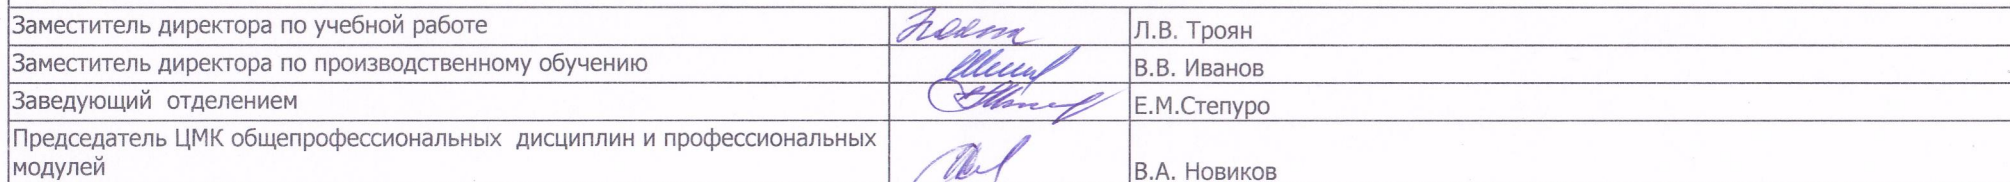 Заместитель директора по учебной работе Л.В. Троян
Заместитель директора по производственному обучению В.В. Иванов
Заведующий отделением Е.М.Степуро
Председатель ЦМК общепрофессиональных дисциплин и профессиональных
модулей В.А. Новиков